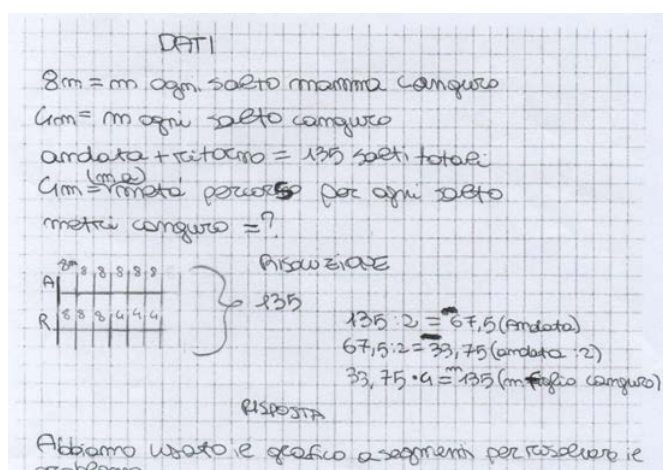 DATI
8m = m ogni salto mamma canguro
4m = m ogni salto canguro
andata + ritorno = 135 salti totali
4m (m a) = metà percorso per ogni salto
metri canguro = ?
RISOLUZIONE
A 8m 8 8 8 8 8
R 8 8 8 4 4 4
135
135 : 2 = m 67,5 (andata)
67,5 : 2 = 33,75 (andata : 2)
33,75 · 4 = m 135 (m figlio canguro)
RISPOSTA
Abbiamo usato il grafico a segmenti per risolvere il
problema